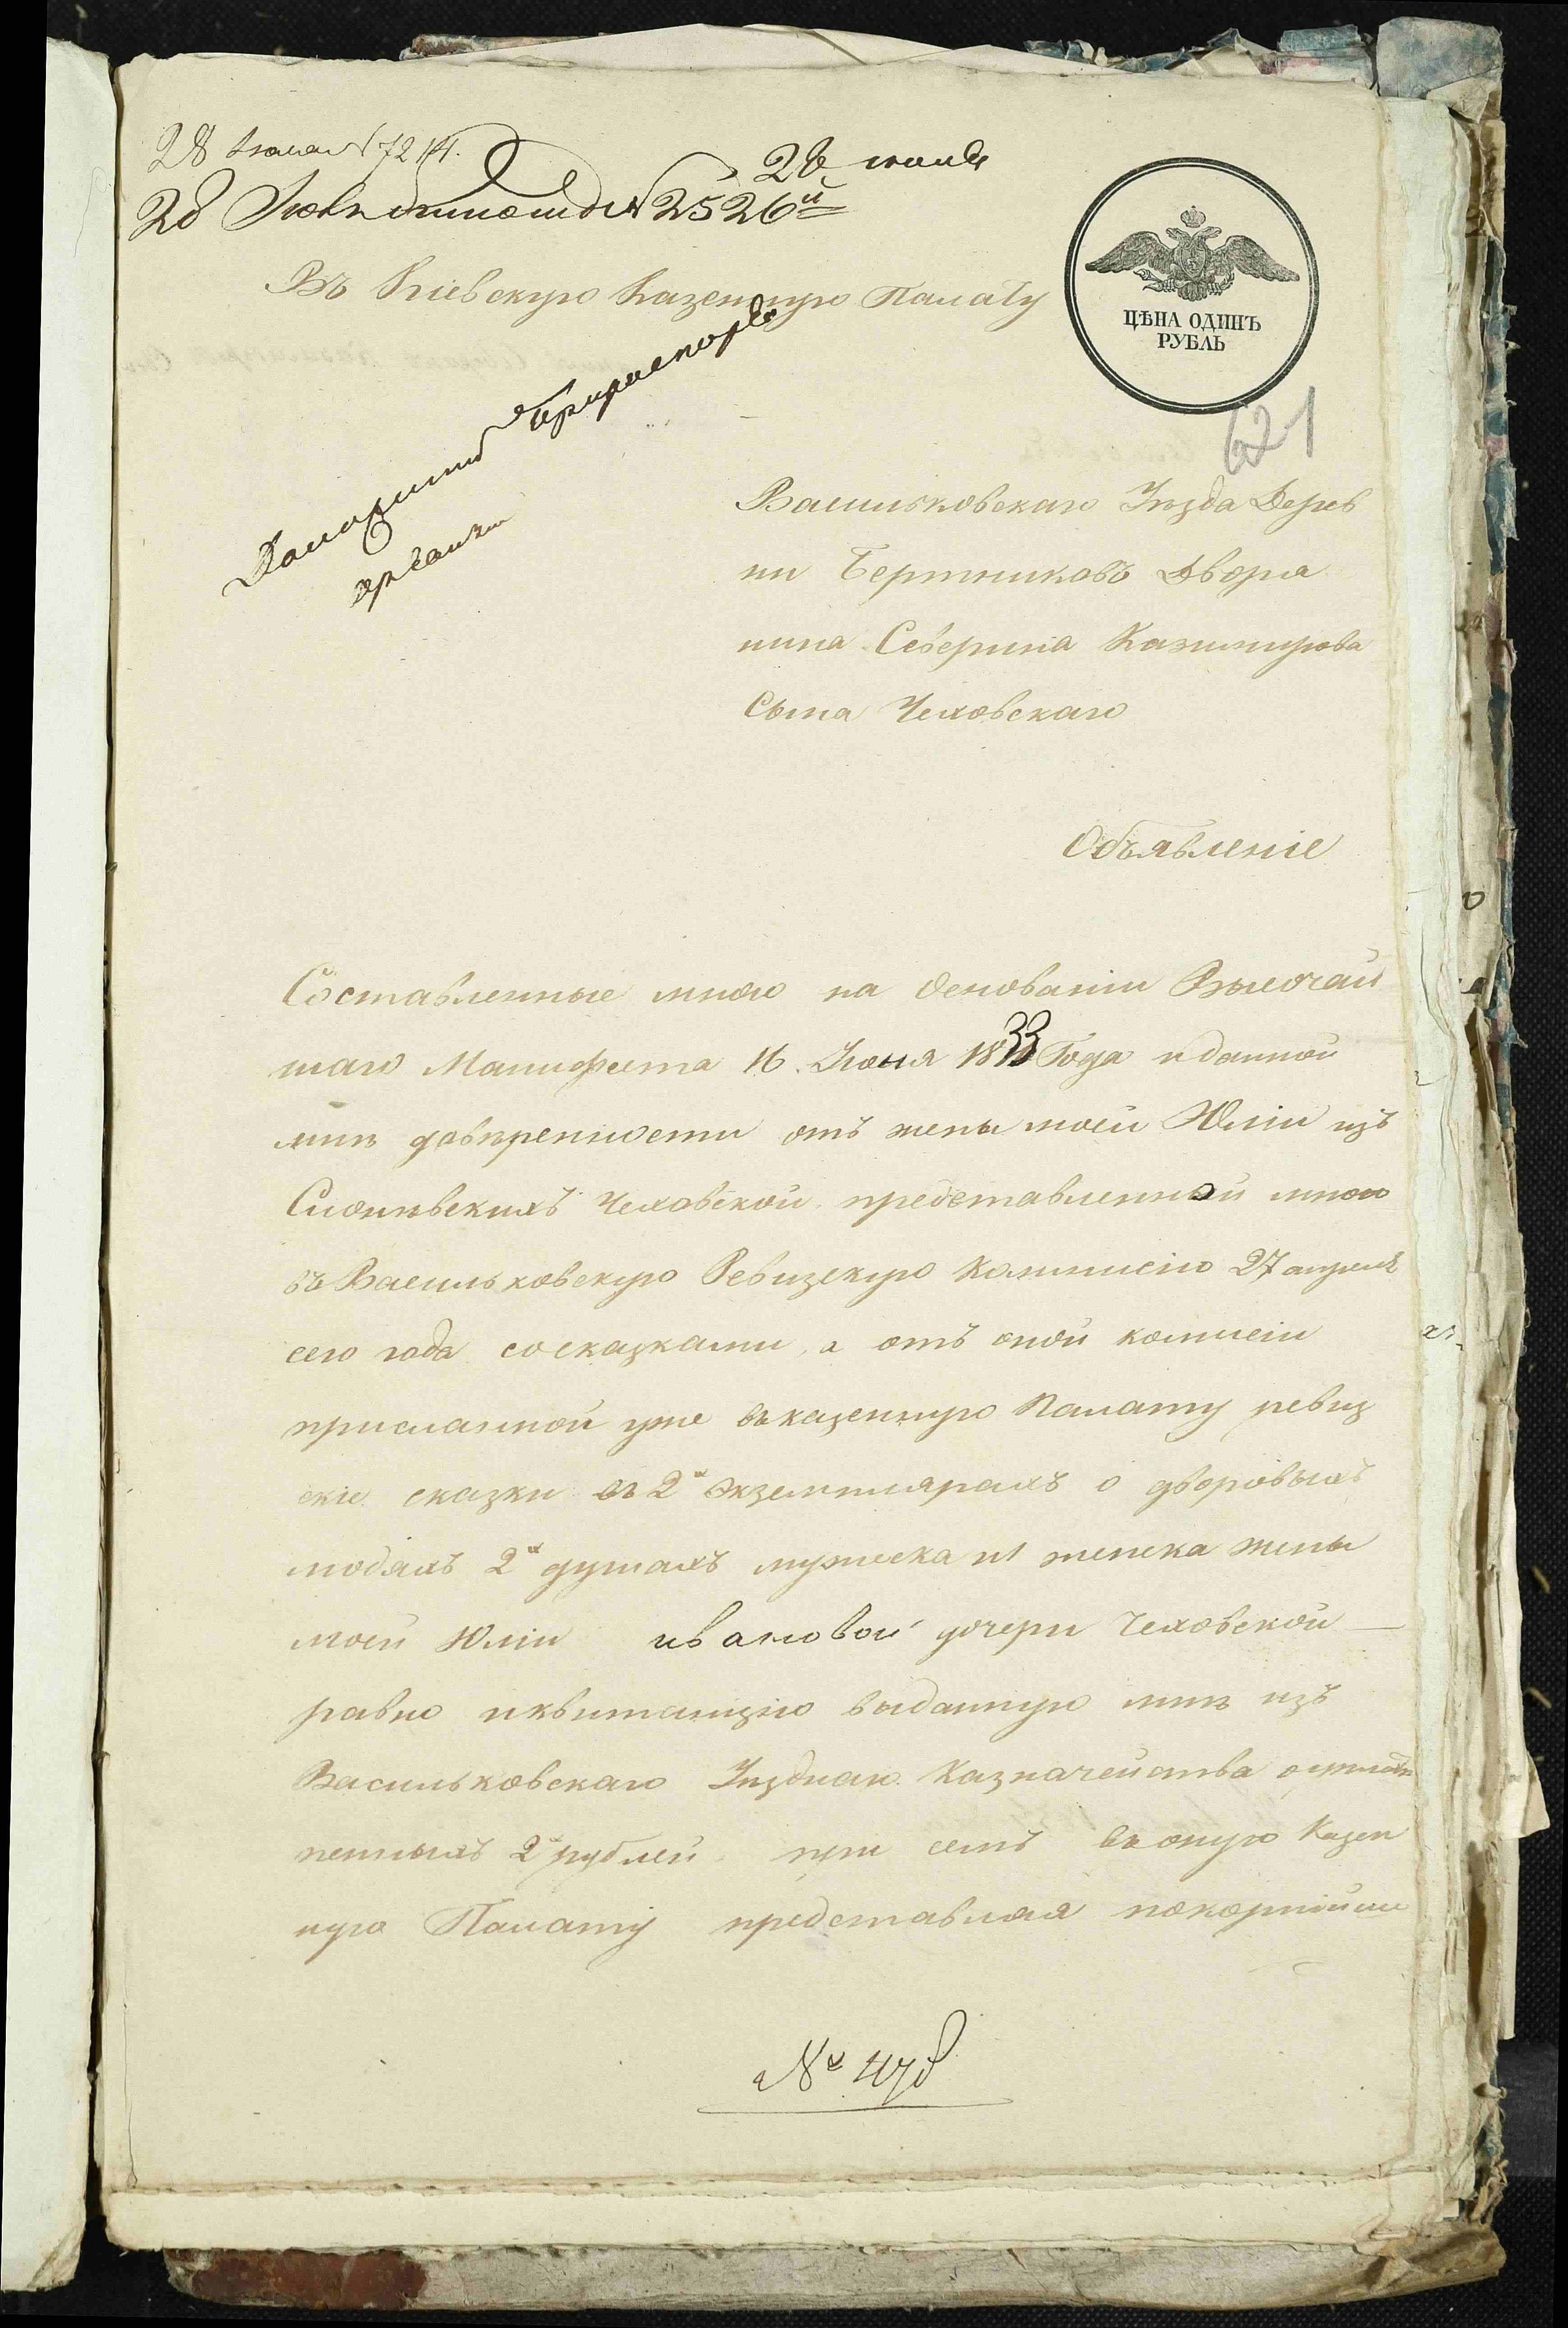 28 Іюля №7214.
28 июля
28 Июля №2526й
Въ Кіевскую Казенную Палату
ЦѢНА ОДИНЪ
РУБЛЬ
621
Доложить
архива
Васильковскаго Уѣзда Дерев
ни Бертниковъ Дворя
нина Северина Казимирова
Сына Чеховскаго
Объявленіе
Составленные мною на Основаніи Высочай
шаго Манифеста 16 Іюня 1833 Года и данной
мнѣ довѣренности отъ жены моей Юліи изъ
Чеховской представленной мною
въ Васильковскую Ревизскую Коммисію 27 апреля
сего года со сказками, а отъ оной комисіи
присланной уже въ казенную Палату ревиз
скіе сказки въ 2х Экземплярахъ о дворовыхъ
людяхъ 2х душахъ мужеска и 1 женска жены
моей Юліи ивановой дочери Чеховской
равно и квитанцію выданную мнѣ изъ
Васильковскаго Уѣзднаго Казначейства о
пенныхъ 2х рублей при семъ въ оную Казен
ную Палату представляя покорнѣйше
№